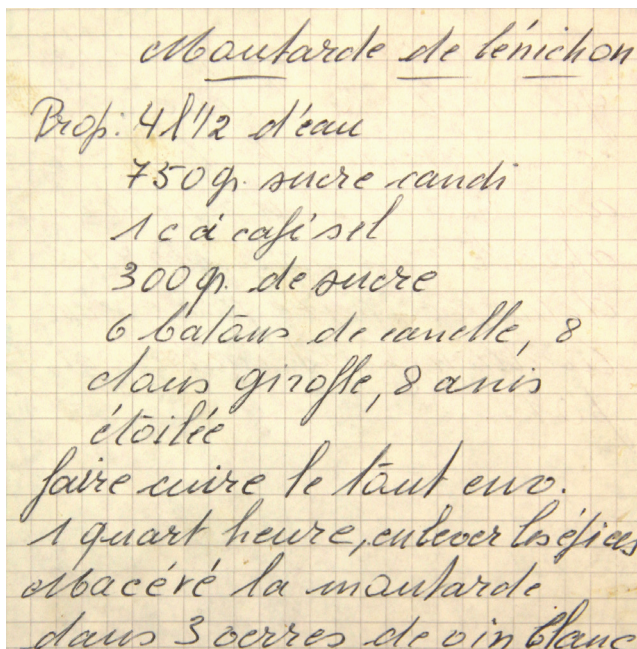 Moutarde de bénichon
Prop: 4 l 1/2 d'eau
750 gr. sucre candi
1 c à café sel
300 gr. de sucre
6 batons de canelle, 8
clous girofle, 8 anis
étoilée
faire cuire le tout env.
1 quart heure, enlever les épices
Macéré la moutarde
dans 3 verres de vin blanc